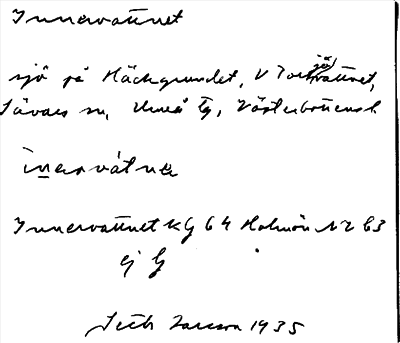 Innervattnet
sjö på Häckgrundet, V Torrvattnet,
Sävars sn, Umeå tg, Västerbottens l
ìnərvátnə
Innervattnet KG 64 Holmön NZ 63
ej G
Seth Larsson 1935